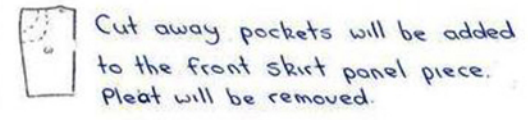 Cut away pockets will be added
to the front skirt panel piece.
Pleat will be removed.